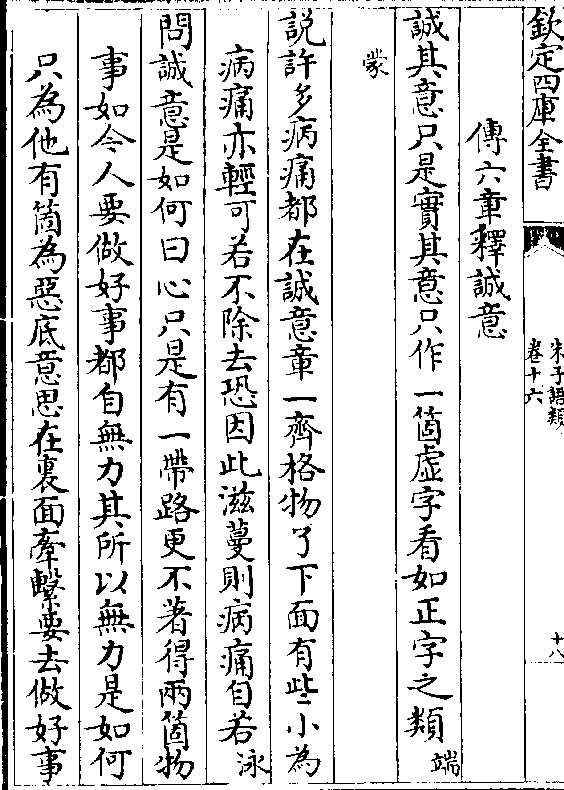 欽定四庫全書
朱子語類
卷十六
十八
傳六章釋誠意
誠其意只是實其意只作一箇虛字看如正字之類端
蒙
說許多病痛都在誠意章一齊格物了下面有些小為
病痛亦輕可若不除去恐因此滋蔓則病痛自若泳
問誠意是如何曰心只是有一帶路更不著得兩箇物
事如今人要做好事都自無力其所以無力是如何
只為他有箇為惡底意思在裏面牽繫要去做好事